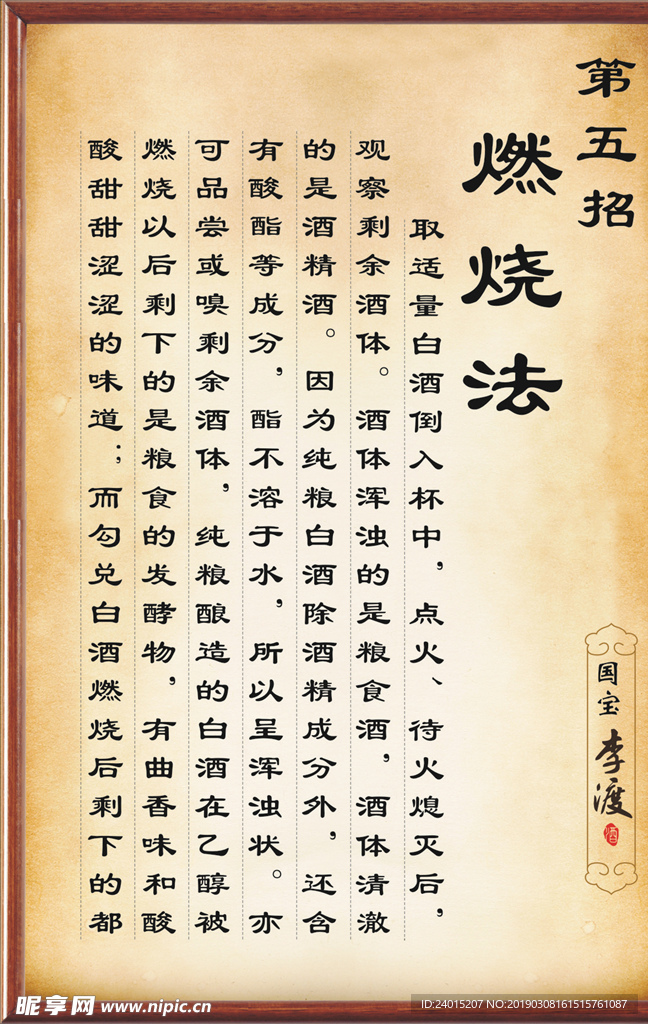 第五招
燃烧法
取适量白酒倒入杯中，点火、待火熄灭后，
观察剩余酒体。酒体浑浊的是粮食酒，酒体清澈
的是酒精酒。因为纯粮白酒除酒精成分外，还含
有酸酯等成分，酯不溶于水，所以呈浑浊状。亦
可品尝或嗅剩余酒体，纯粮酿造的白酒在乙醇被
燃烧以后剩下的是粮食的发酵物，有曲香味和酸
酸甜甜涩涩的味道；而勾兑白酒燃烧后剩下的都
国宝李渡
酒
昵享网 www.nipic.cn
ID:24015207 NO:20190308161515761087